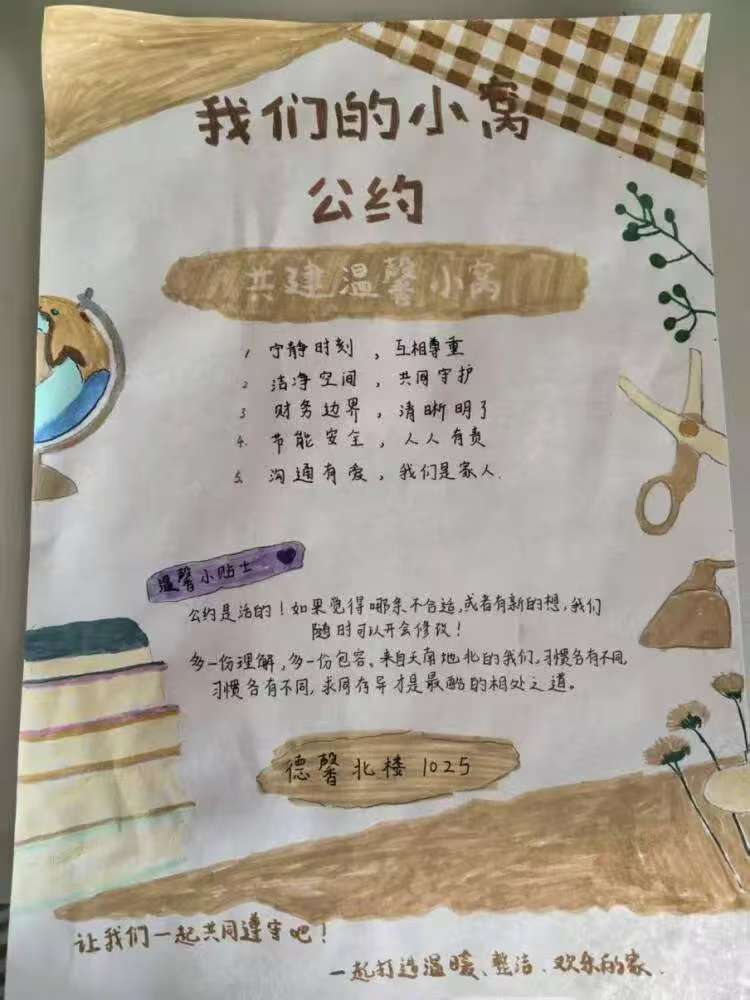 我们的小窝
公约
共建温馨小窝
1 宁静时刻，互相尊重
2 洁净空间，共同守护
3 财务边界，清晰明了
4. 节能安全，人人有责
5. 沟通有爱，我们是家人.
温馨小贴士
公约是活的！如果觉得哪条不合适,或者有新的想,我们
随时可以开会修改！
多一份理解,多一份包容、来自天南地北的我们,习惯各有不同,
习惯各有不同,求同存异才是最酷的相处之道。
德馨北楼1025
让我们一起共同遵守吧！
一起打造温暖、整洁、欢乐的家.